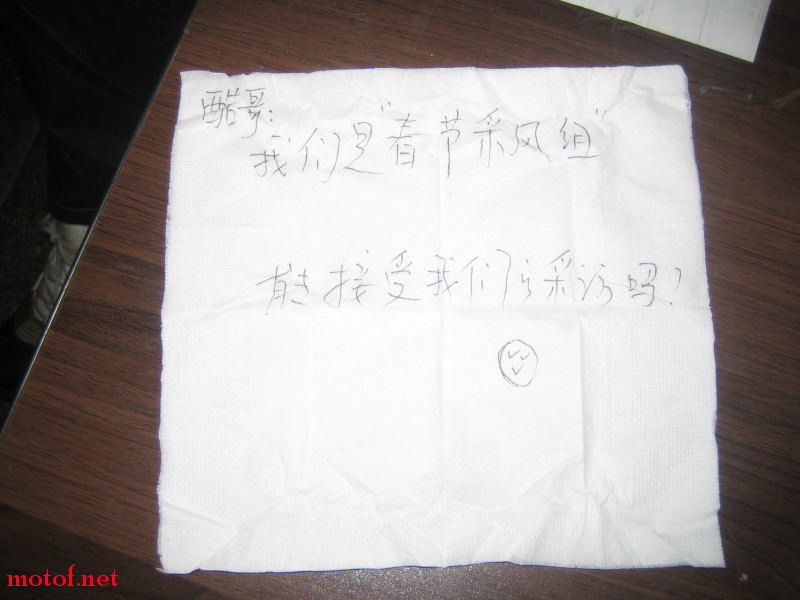 酷哥:
我们是"春节采风组"
能接受我们的采访吗?
motof.net